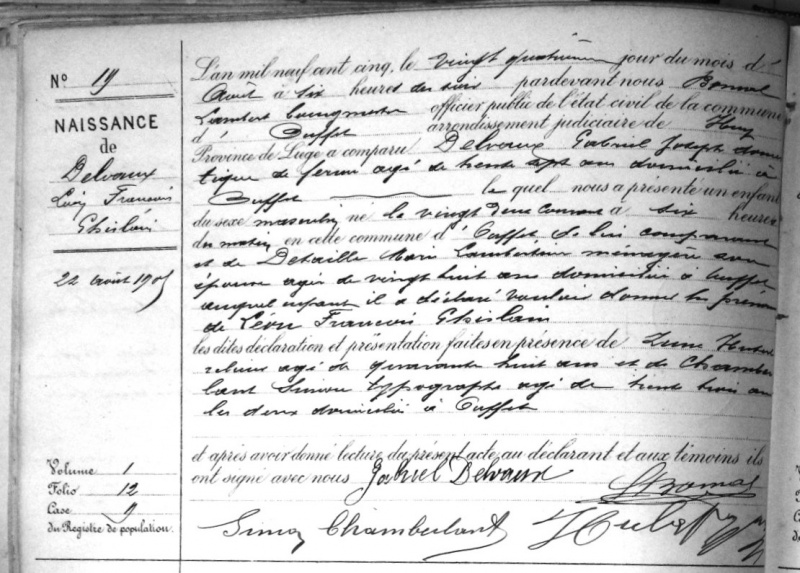 N° 19
NAISSANCE
de
Delvaux
Léon Francois
Ghislain
22 Août 1905
Volume 1
Folio 12
Case 9
du Registre de population.
L'an mil neuf cent cinq, le vingt quatrième jour du mois d'
Août à six heures du soir pardevant nous Bomal
Lambert bourgmestre officier public de l'état civil de la commune
d' Ouffet arrondissement judiciaire de Huy
Province de Liége a comparu Delvaux Gabriel Joseph domes
tique de ferme agé de trente sept ans domicilié à
Ouffet le quel nous a présenté un enfant
du sexe masculin né le vingt deux courant à six heures
du matin en cette commune d'Ouffet de lui comparant
et de Detaille Marie Lambertine ménagère son
épouse agée de vingt huit ans domiciliée à Ouffet
auquel enfant il a déclaré vouloir donner les prénoms
de Léon Francois Ghislain
les dites déclaration et présentation faites en présence de Hubert
agé de quarante huit ans et de Chambe
lant Simon typographe agé de trente trois ans
les deux domiciliés à Ouffet
et après avoir donné lecture du présent acte au déclarant et aux témoins ils
ont signé avec nous Gabriel Delvaux
LBomal
Simon Chambelant